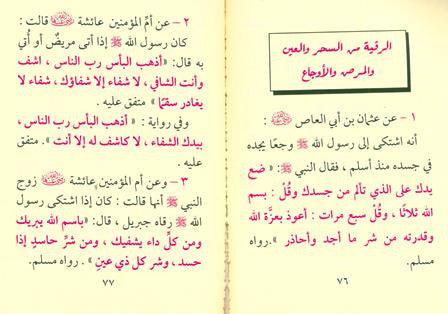 الرقية من السحر والعين
والمرض والأوجاع
١ - عن عثمان بن أبي العاص رضي الله عنه :
أنه اشتكى إلى رسول الله ﷺ وجعًا يجده
في جسده منذ أسلم ، فقال النبي ﷺ : « ضع
يدك على الذي تألم من جسدك وقُلْ : بسم
الله ثلاثًا ، وقُلْ سبع مرات : أعوذ بعزَّة الله
وقدرته من شر ما أجد وأحاذر » .رواه
مسلم.
٧٦
٢ - عن أمِّ المؤمنين عائشة رضي الله عنها قالت :
كان رسول الله ﷺ إذا أتى مريضٌ أو أُتي
به قال: « أذهب البأس رب الناس ، اشف
وأنت الشافي ، لا شفاء إلا شفاؤك ، شفاء لا
يغادر سقمًا » متفق عليه .
وفي رواية : « أذهب البأس رب الناس ،
بيدك الشفاء ، لا كاشف له إلا أنت » .متفق
عليه .
٣ - وعن أم المؤمنين عائشة رضي الله عنها زوج
النبي ﷺ أنها قالت : كان إذا اشتكى رسول
الله ﷺ رقاه جبريل ، قال : « باسم الله يبريك
ومن كلِّ داء يشفيك ، ومن شرِّ حاسدٍ إذا
حسد ، وشر كل ذي عينٍ » . رواه مسلم.
٧٧